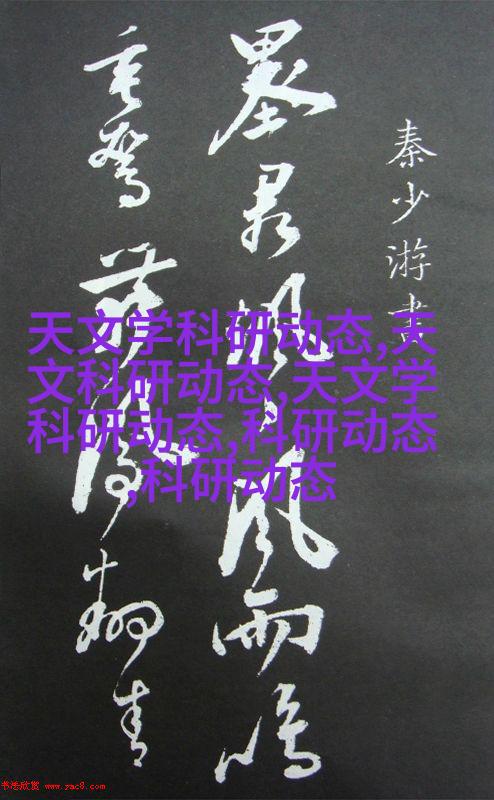 秦少游書
墨君颯々風雨鳴
天文学科研动态,天
文科研动态,天文学
科研动态,科研动态
,科研动态
书法欣赏 www.yac8.com